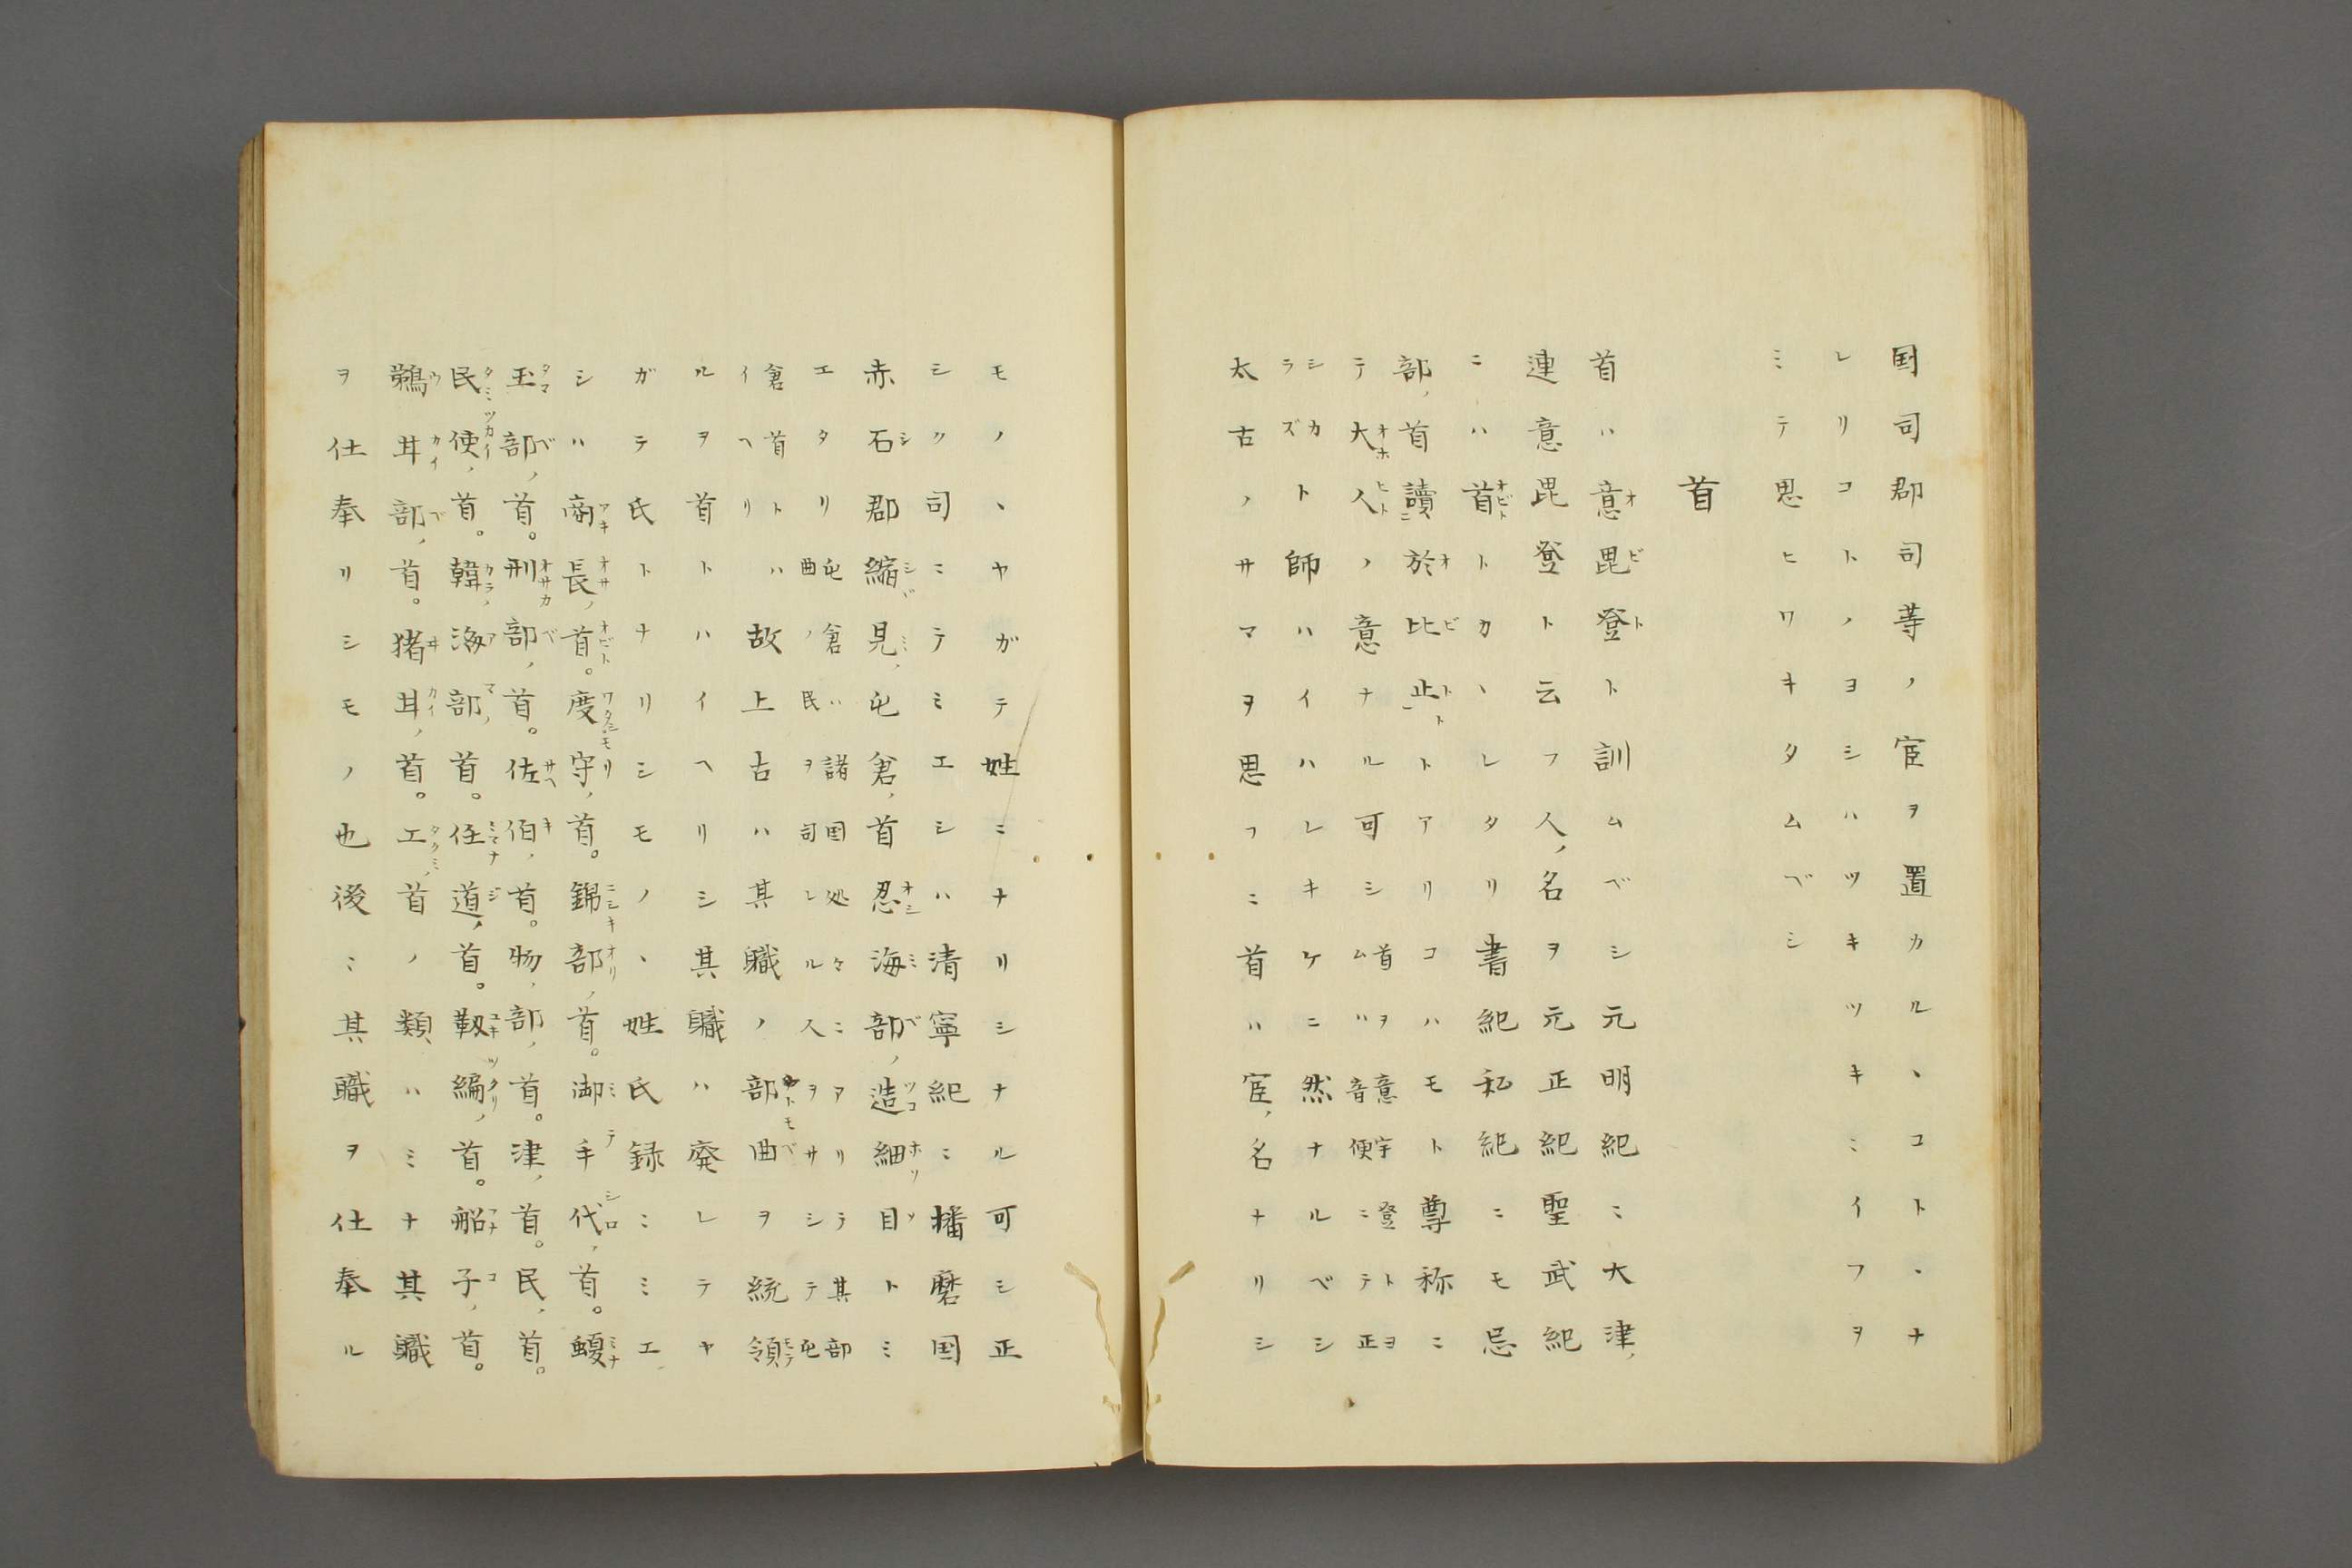 国司郡司等ノ宦ヲ置カルヽコトヽナ
レリコトノヨシハツキツキミイフヲ
ミテ思ヒワキタムベシ
首
首ハ意毘登ト訓ムベシ元明紀ニ大津ノ
連意毘登ト云フ人ノ名ヲ元正紀聖武紀
ニハ首トカヽレタリ書紀私紀ニモ忌
部ノ首讀於比止トアリコハモト尊称ニ
テ大人ノ意ナル可シ首ヲ意宇登トヨムハ音便ニテ正
シカラズト師ハイハレキケニ然ナルベシ
太古ノサマヲ思フニ首ハ宦ノ名ナリシ
モノヽヤガテ姓ニナリシナル可シ正
シク司ニテミエシハ清寧紀ニ播磨国
赤石郡縮見ノ屯倉ノ首忍海部ノ造細目トミ
エタリ屯倉ハ諸国処々ニアリテ其部曲ノ民ヲ司レル人ヲサシテ屯
倉首トハイヘリ故上古ハ其職ノ部曲ヲ統領
ルヲ首トハイヘリシ其職ハ廃レテヤ
ガテ氏トナリシモノヽ姓氏録ニミエ
シハ商長ノ首。度守ノ首。錦部ノ首。御手代ノ首。蝮
玉部ノ首。刑部ノ首。佐伯ノ首。物ノ部ノ首。津ノ首。民ノ首。
民使ノ首。韓海部ノ首。任道ノ首。靱編ノ首。船子ノ首。
鵜甘部ノ首。猪甘ノ首。工ノ首ノ類ハミナ其職
ヲ仕奉リシモノ也後ニ其職ヲ仕奉ル